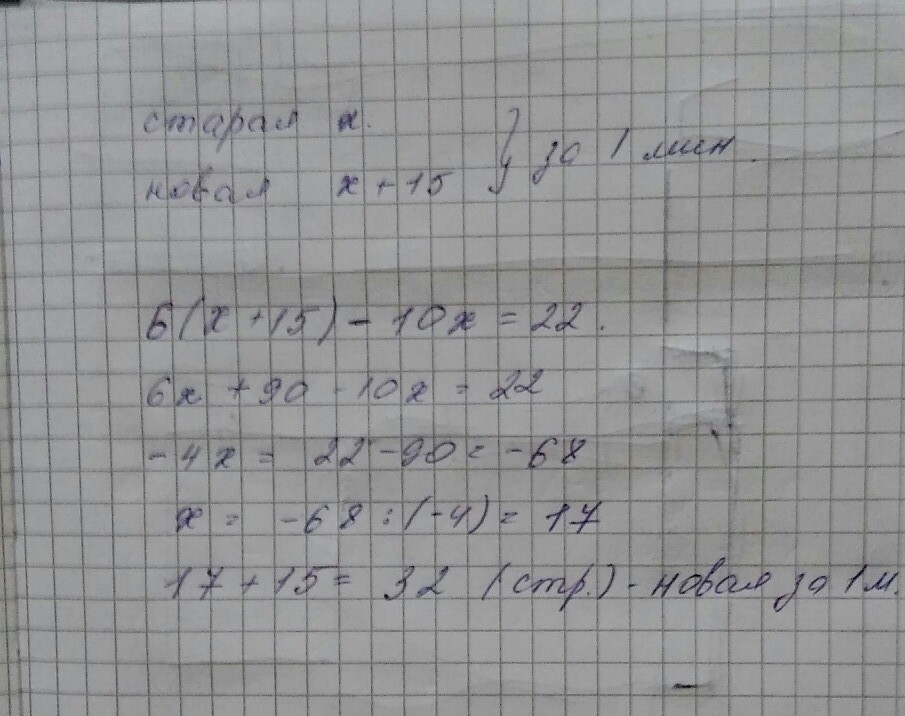 старая x.
новая x + 15 } за 1 мин.
6(x + 15) - 10x = 22.
6x + 90 - 10x = 22
-4x = 22 - 90 = -68
x = -68 : (-4) = 17
17 + 15 = 32 (стр.) - новая за 1 м.